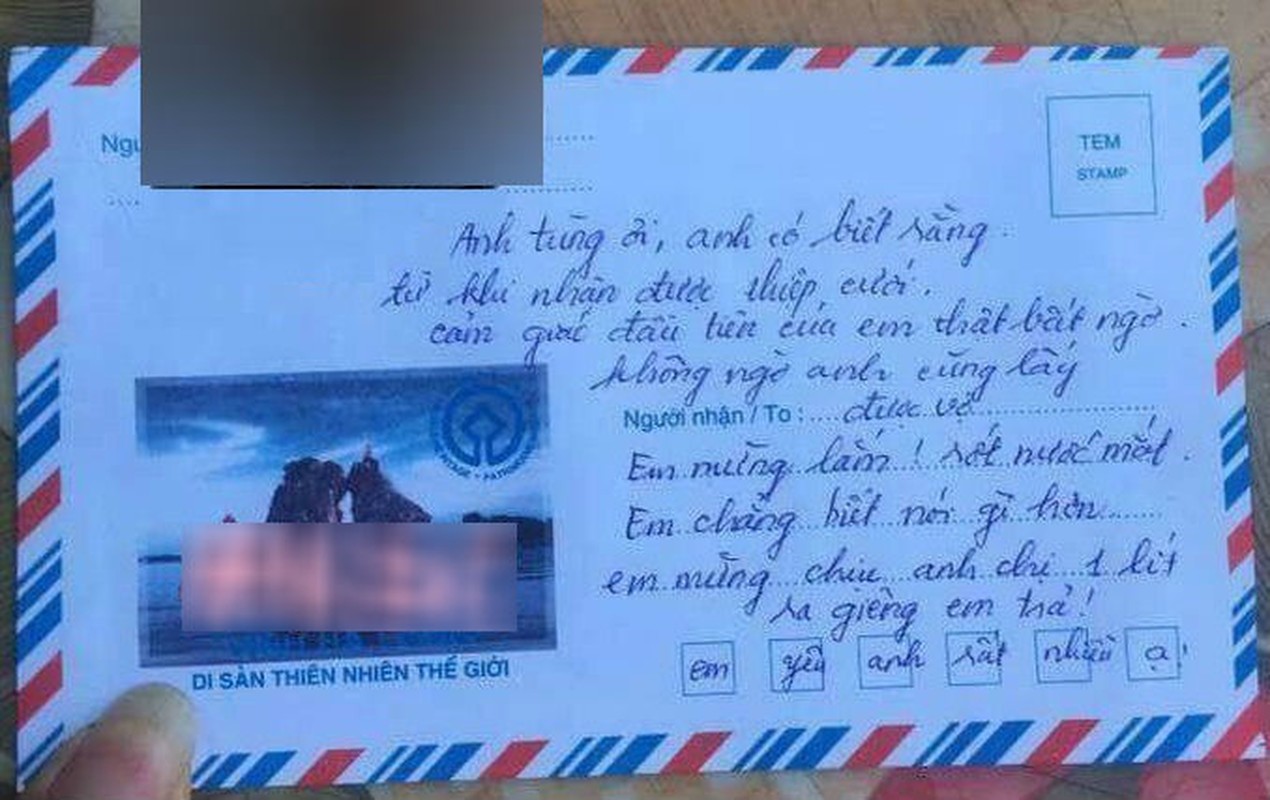 Ngư
TEM
STAMP
Anh tùng ơi, anh có biết rằng
từ khi nhận được thiệp cưới.
cảm giác đầu tiên của em thật bất ngờ.
không ngờ anh cũng lấy
Người nhận / To : được vợ
Em mừng lắm! rớt nước mắt.
Em chẳng biết nói gì hơn
em mừng chiu anh chị 1 lít
ra giêng em trả!
em yêu anh rất nhiều ạ!
DI SẢN THIÊN NHIÊN THẾ GIỚI